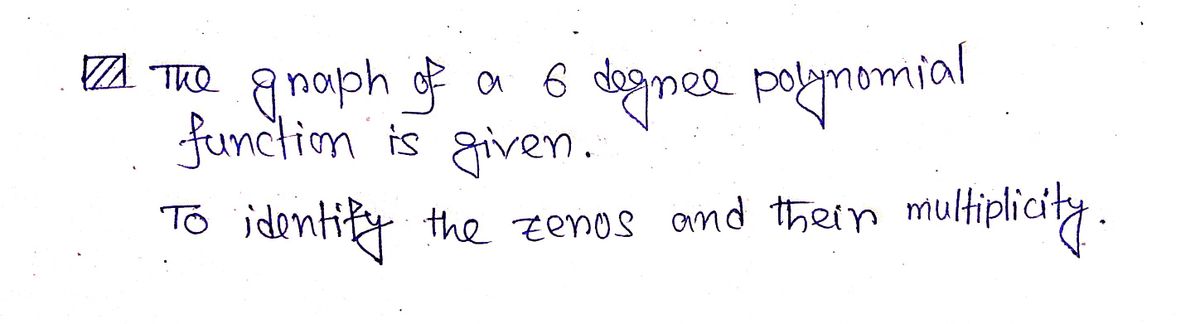 The graph of a 6 degree polynomial
function is given.
To identify the zeros and their multiplicity.